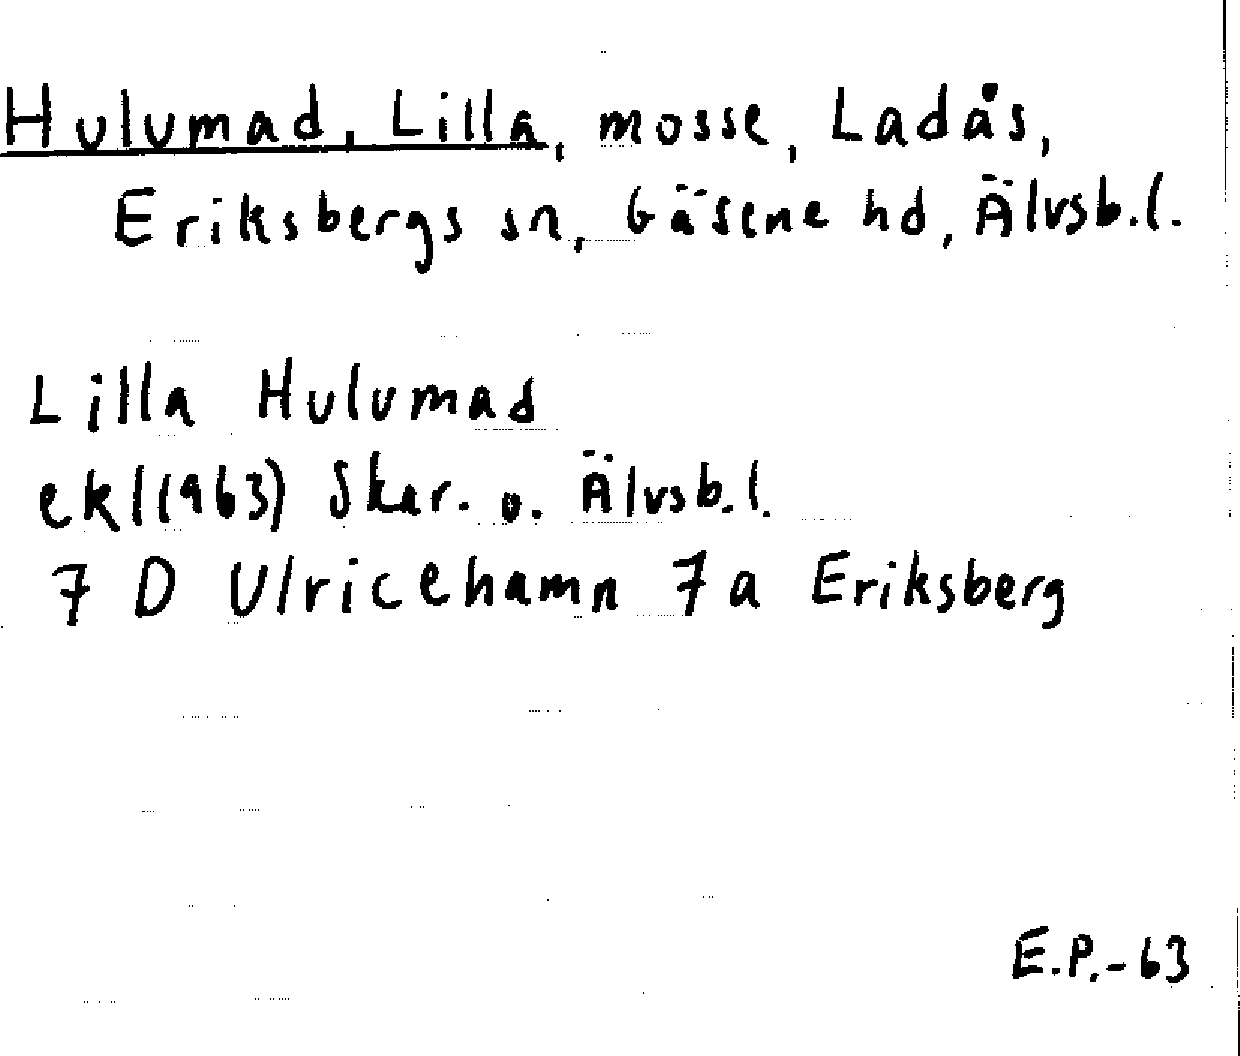 Hulumad, Lilla, mosse, Ladås,
Eriksbergs sn, Gäsene hd, Älvsb.l.
Lilla Hulumad
ekl(963) Skar. o. Älvsb.l.
7 D Ulricehamn 7 a Eriksberg
E.P.-63